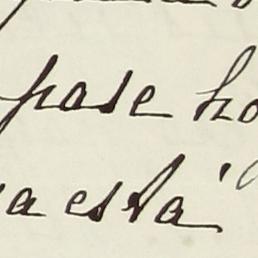 pase ho
a está